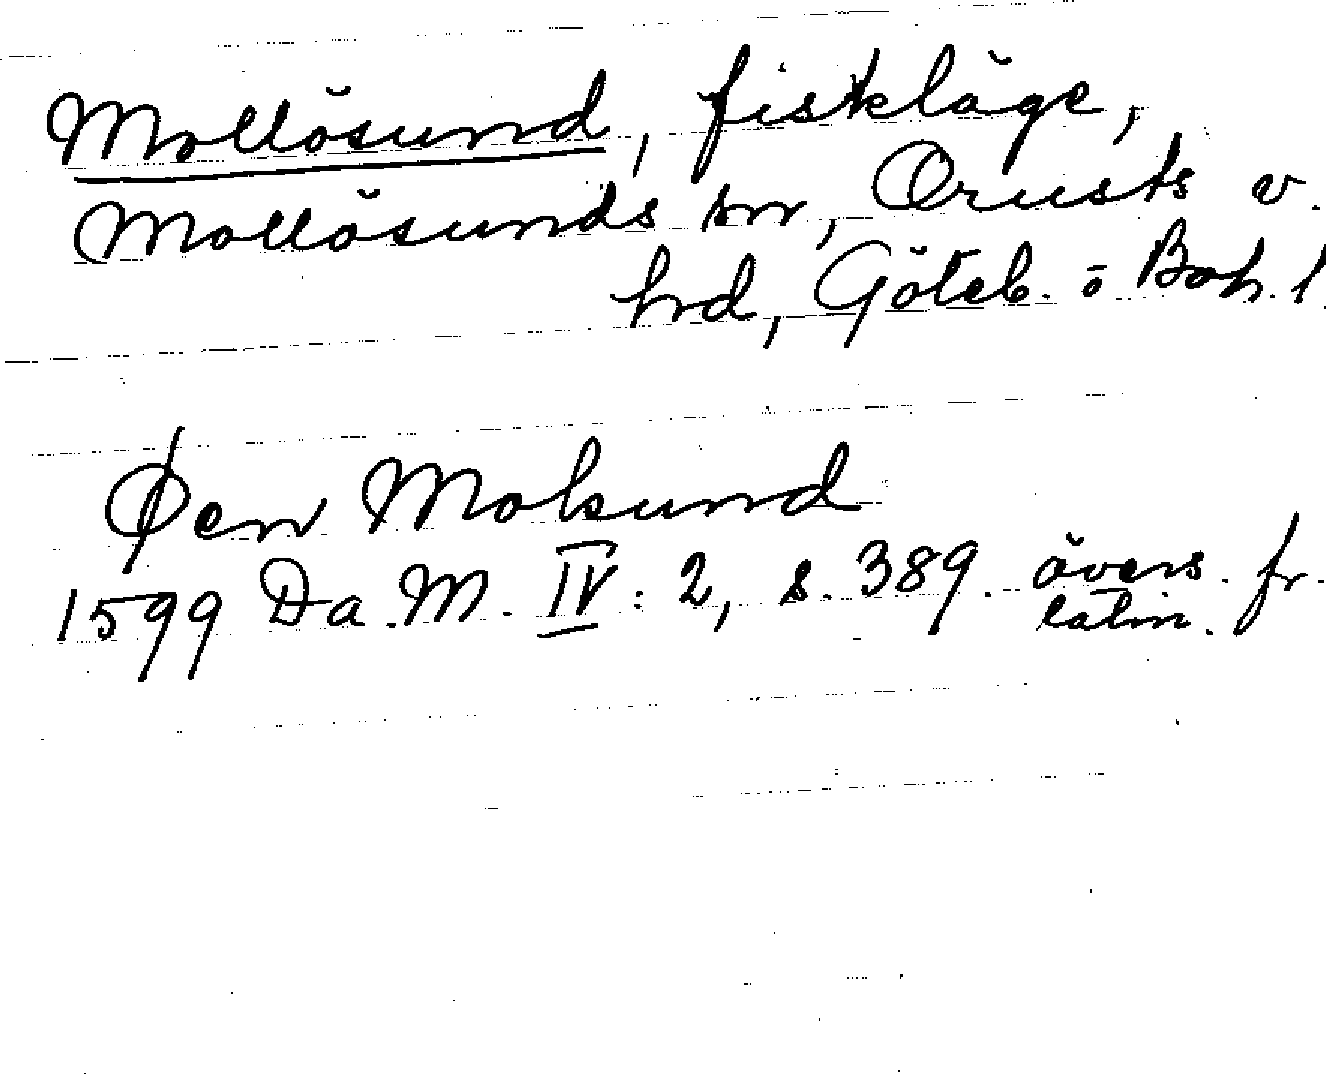 Mollösund, fiskläge,
Mollösunds sn, Orusts v.
hd, Göteb. o Boh. l.
Øen Molsund
1599 Da. M. IV: 2, s. 389. övers. fr.
latin.